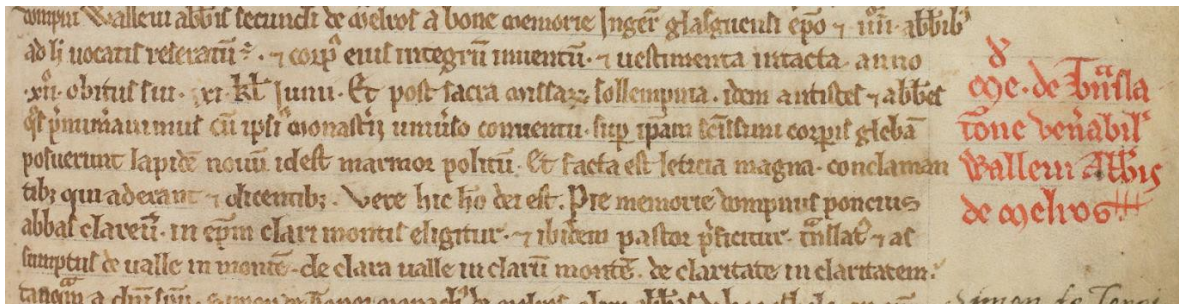 dompni Walleui abb̄is secundi de melros a bone memorie Inger̄ glasguensi ep̄o ⁊ .iiii. abb̄ib⁹
ad h̄ uocatis reseratū ⁊ corp⁹ eius integrū inuentū. ⁊ uestimenta intacta. anno
.xii. obitus sui. .xi. kl̄ Junii. Et post sacra missaꝝ sollempnia. idem antistes ⁊ abb̄es
q̄s p̄nūinauimus cū ipsi⁹ monast̄ij uniuso conuentu. sup ip̄am sc̄issimi corp̄is glebā
posuerunt lapidē nouū idest marmor politū. Et facta est leticia magna. conclaman
tibꝫ qui aderant ⁊ dicentibꝫ. Vere hic hō dei est. Pie memorie dompnus poncius
abbas clareuͣ. in ep̄m clari montis eligitur. ⁊ ibidem pastor p̄ficitur. tͣnslatꝰ ⁊ as
sumptus de ualle in montē. de clara ualle in clarū montē. de claritate in claritatem.
de tͣnsla
tione ven̄abil̄
Walleui Abb̄is
de melros